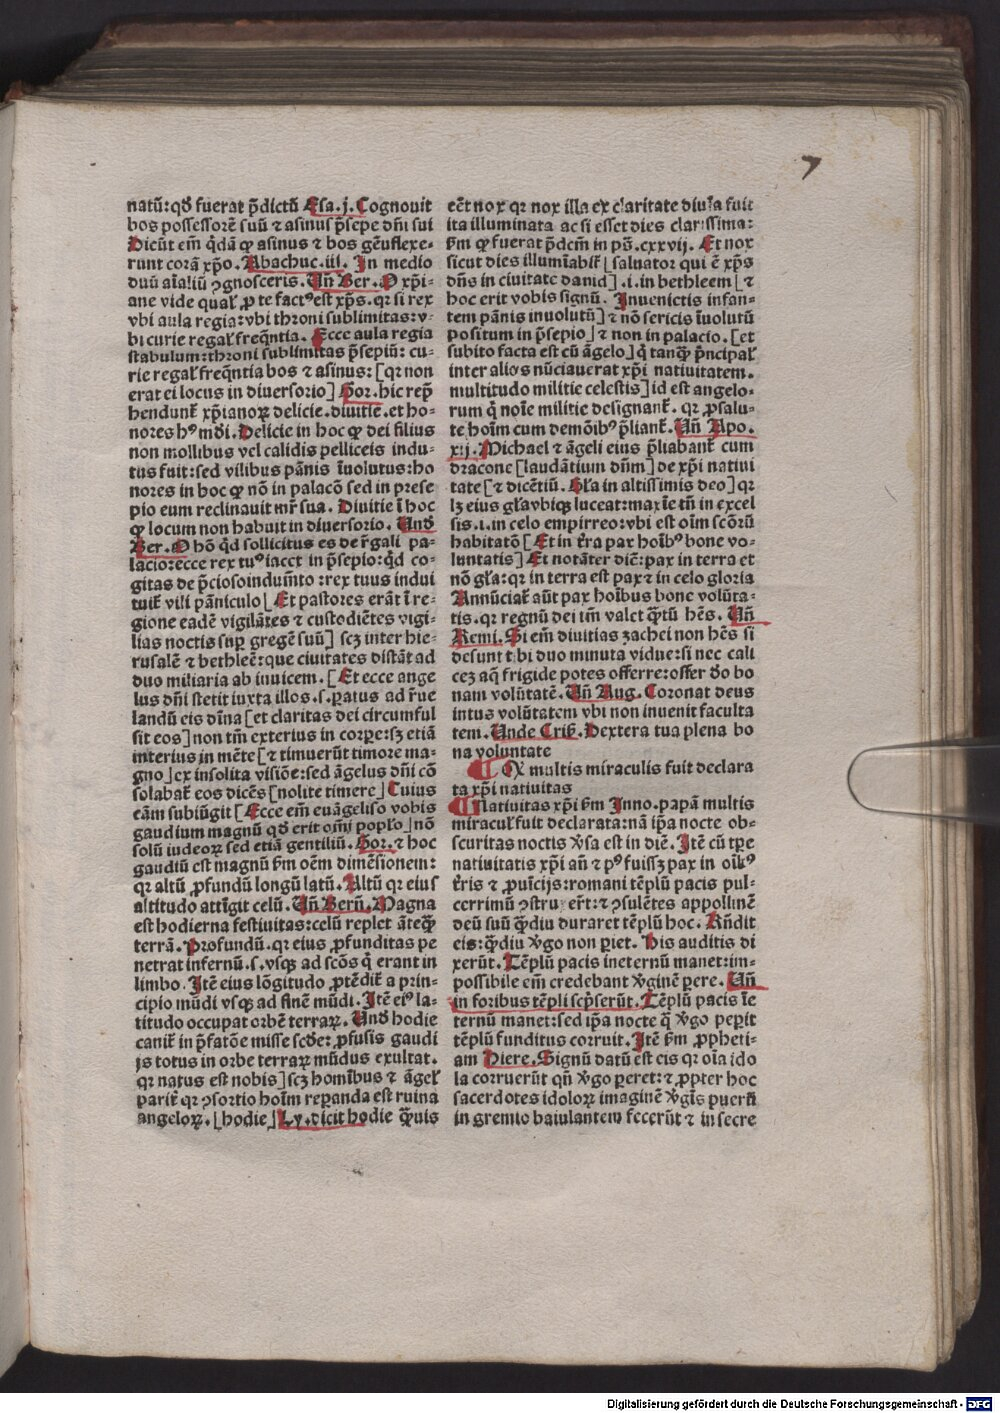 7
natū: qđ fuerat p̄dictū Esa.j. Cognouit
bos possessorē suū ⁊ asinus p̄sepe dn̄i sui
Dicūt em̄ q̄dā ꝙ asinus ⁊ bos gēuflexe-
runt corā xp̄o. Abachuc.iii. In medio
duū aīaliū ꝯgnosceris. Un̄ Ber. O xp̄i-
ane vide qualꝭ ꝓ te factꝰ est xp̄s. qꝛ si rex
vbi aula regia: vbi throni sublimitas: v-
bi curie regalꝭ freq̄ntia. Ecce aula regia
stabulum: throni sublimitas p̄sepiū: cu-
rie regalꝭ freq̄ntia bos ⁊ asinus: [qꝛ non
erat ei locus in diuersorio] Gor. hic rep̄
hendunt̄ xp̄ianoꝝ delicie. diuitie. et ho-
nores hꝰ mūdi. Delicie in hoc ꝙ dei filius
non mollibus vel calidis pelliceis indu-
tus fuit: sed vilibus pānis īuolutus: ho
nores in hoc ꝙ nō in palacō sed in prese
pio eum reclinauit mr̄ sua. Diuitie ī hoc
ꝙ locum non habuit in diuersorio. Unđ
Ber. O hō q̄d sollicitus es de r̄gali pa-
lacio: ecce rex tuꝰ iacet in p̄sepio: q̄d co-
gitas de p̄cioso indumēto: rex tuus indui
tuit̄ vili pāniculo [Et pastores erāt ī re-
gione eadē vigilātes ⁊ custodiētes vigi-
lias noctis suꝑ gregē suū] scꝫ inter hie-
rusalē ⁊ bethleē: que ciuitates distāt ad
duo miliaria ab inuicem. [Et ecce ange
lus dn̄i stetit iuxta illos. s. ꝑatus ad r̄ue
landū eis dīna [et claritas dei circumful
sit eos] non tm̄ exterius in corꝑe: sꝫ etiā
interius in mēte [⁊ timuerūt timore ma-
gno] ex insolita visiōe: sed āgelus dn̄i cō
solabat̄ eos dicēs [nolite timere] Cuius
eām subiūgit [Ecce em̄ euāgeliso vobis
gaudium magnū qđ erit om̄i poplo] nō
solū iudeoꝝ sed etiā gentiliū. Gor. ⁊ hoc
gaudiū est magnū ẜm oēm dimēsionem:
qꝛ altū ꝓfundū longū latū. Altū qꝛ eius
altitudo attīgit celū. Un̄ Berñ. Magna
est hodierna festiuitas: celū replet āteq̄ꝫ
terrā. Profundū. qꝛ eius ꝓfunditas pe
netrat infernū. s. vsqꝫ ad scōs q̄ erant in
limbo. Itē eius lōgitudo ꝓtēdit̄ a prin-
cipio mūdi vsqꝫ ad finē mūdi. Itē eiꝰ la-
titudo occupat orbē terraꝝ. Unđ hodie
canit̄ in p̄fatōe misse scđe: ꝓfusis gaudi
js totus in orbe terraꝝ mūdus exultat.
qꝛ natus est nobis] scꝫ homībus ⁊ āgelꝭ
parit̄ qꝛ ꝯsortio hoīm reꝑanda est ruina
angeloꝝ. [hodie] Ly. dicit hodie q̄uis
eēt nox qꝛ nox illa ex claritate diuīa fuit
ita illuminata ac si esset dies clarissima:
ẜm ꝙ fuerat p̄dcm̄ in ps̄. cxxvij. Et nox
sicut dies illumīabit̄ [saluator qui ē xp̄s
dn̄s in ciuitate dauid] .i. in bethleem [⁊
hoc erit vobis signū. Inuenietis infan-
tem pānis inuolutū] ⁊ nō sericis īuolutū
positum in p̄sepio] ⁊ non in palacio. [et
subito facta est cū āgelo] q̄ tanq̄ꝫ p̄ncipalꝭ
inter alios nūciauerat xp̄i natiuitatem.
multitudo militie celestis] id est angelo-
rum q̄ noīe militie designant̄. qꝛ ꝓ salu-
te hoīm cum demōibꝰ p̄liant̄. Un̄ Apo.
xij. Michael ⁊ āgeli eius p̄liabant̄ cum
dracone [laudātium dn̄m] de xp̄i natiui
tate [⁊ dicētiū. Gl̄a in altissimis deo] qꝛ
lꝫ eius gl̄a vbiqꝫ luceat: maxīe tn̄ in excel
sis. i. in celo empirreo: vbi est oīm scōrū
habitatō [Et in t̄ra pax hoībꝰ bone vo-
luntatis] Et notāter diē: pax in terra et
nō gl̄a: qꝛ in terra est pax ⁊ in celo gloria
Annūciat̄ aūt pax hoībus bone volūta-
tis. qꝛ regnū dei im̄ valet q̄tū hēs. Un̄
Remi. Si em̄ diuitias zachei non hēs si
desunt tibi duo minuta vidue: si nec cali
ceꝫ aq̄ frigide potes offerre: offer do bo
nam volūtatē. Un̄ Aug. Coronat deus
intus volūtatem vbi non inuenit faculta
tem. Unde Crisꝭ. Dextera tua plena bo
na voluntate
¶ Qꝫ multis miraculis fuit declara
ta xp̄i natiuitas
¶ Natiuitas xp̄i ẜm Inno. papā multis
miraculꝭ fuit declarata: nā ip̄a nocte ob-
scuritas noctis v̄sa est in diē. Itē cū tꝑe
natiuitatis xp̄i añ ⁊ pꝰ fuissꝫ pax in oībꝰ
t̄ris ⁊ ꝓuīcijs: romani tēplū pacis pul-
cerrimū ꝯstruxer̄t: ⁊ ꝯsulētes appollinē
deū suū q̄ꝫdiu duraret tēplū hoc. Rn̄dit
eis: q̄ꝫdiu v̄go non ꝑiet. His auditis di
xerūt. Tēplū pacis ineternū manet: im-
possibile em̄ credebant v̄ginē ꝑere. Un̄
in foribus tēpli scp̄serūt. Tēplū pacis īe
ternū manet: sed ip̄a nocte q̄ v̄go peꝑit
tēplū funditus corruit. Itē ẜm ꝓpheti-
am Hiere. Signū datū est eis qꝛ oīa ido
la corruerūt qn̄ v̄go ꝑeret: ⁊ ꝓpter hoc
sacerdotes idoloꝝ imaginē v̄gīs puerū
in gremio baiulantem fecerūt ⁊ in secre
Digitalisierung gefördert durch die Deutsche Forschungsgemeinschaft - DFG